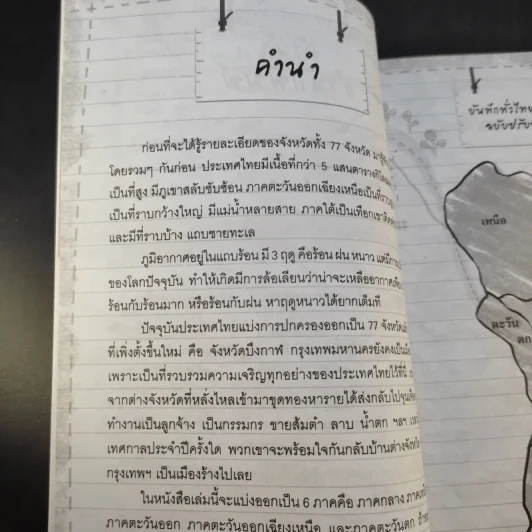 คำนำ
ก่อนที่จะได้รู้รายละเอียดของจังหวัดทั้ง 77 จังหวัด มา
โดยรวมๆ กันก่อน ประเทศไทยมีเนื้อที่กว่า 5 แสนตาราง
เป็นที่สูง มีภูเขาสลับซับซ้อน ภาคตะวันออกเฉียงเหนือเป็นที่
เป็นที่ราบกว้างใหญ่ มีแม่น้ำหลายสาย ภาคใต้เป็นเทือกเขา
และมีที่ราบบ้าง แถบชายทะเล
ภูมิอากาศอยู่ในแถบร้อน มี 3 ฤดู คือร้อน ฝน หนาว แต่
ของโลกปัจจุบัน ทำให้เกิดมีการล้อเลียนว่าน่าจะเหลืออากาศ
ร้อนกับร้อนมาก หรือร้อนกับฝน หาฤดูหนาวได้ยากเต็มที
ปัจจุบันประเทศไทยแบ่งการปกครองออกเป็น 77 จังหวัด
ที่เพิ่งตั้งขึ้นใหม่ คือ จังหวัดบึงกาฬ กรุงเทพมหานครยังคงเป็น
เพราะเป็นที่รวบรวมความเจริญทุกอย่างของประเทศไทยไว้ที่นี่
จากต่างจังหวัดที่หลั่งไหลเข้ามาขุดทองหารายได้ส่งกลับไป
ทำงานเป็นลูกจ้าง เป็นกรรมกร ขายส้มตำ ลาบ น้ำตก ฯลฯ
เทศกาลประจำปีครั้งใด พวกเขาจะพร้อมใจกันกลับบ้านต่างจังหวัด
กรุงเทพฯ เป็นเมืองร้างไปเลย
ในหนังสือเล่มนี้จะแบ่งออกเป็น 6 ภาคคือ ภาคกลาง
ภาคตะวันออก ภาคตะวันออกเฉียงเหนือ และภาคตะวันตก
บันทึกทั่วไทย
เหนือ
ตะวัน
ตก